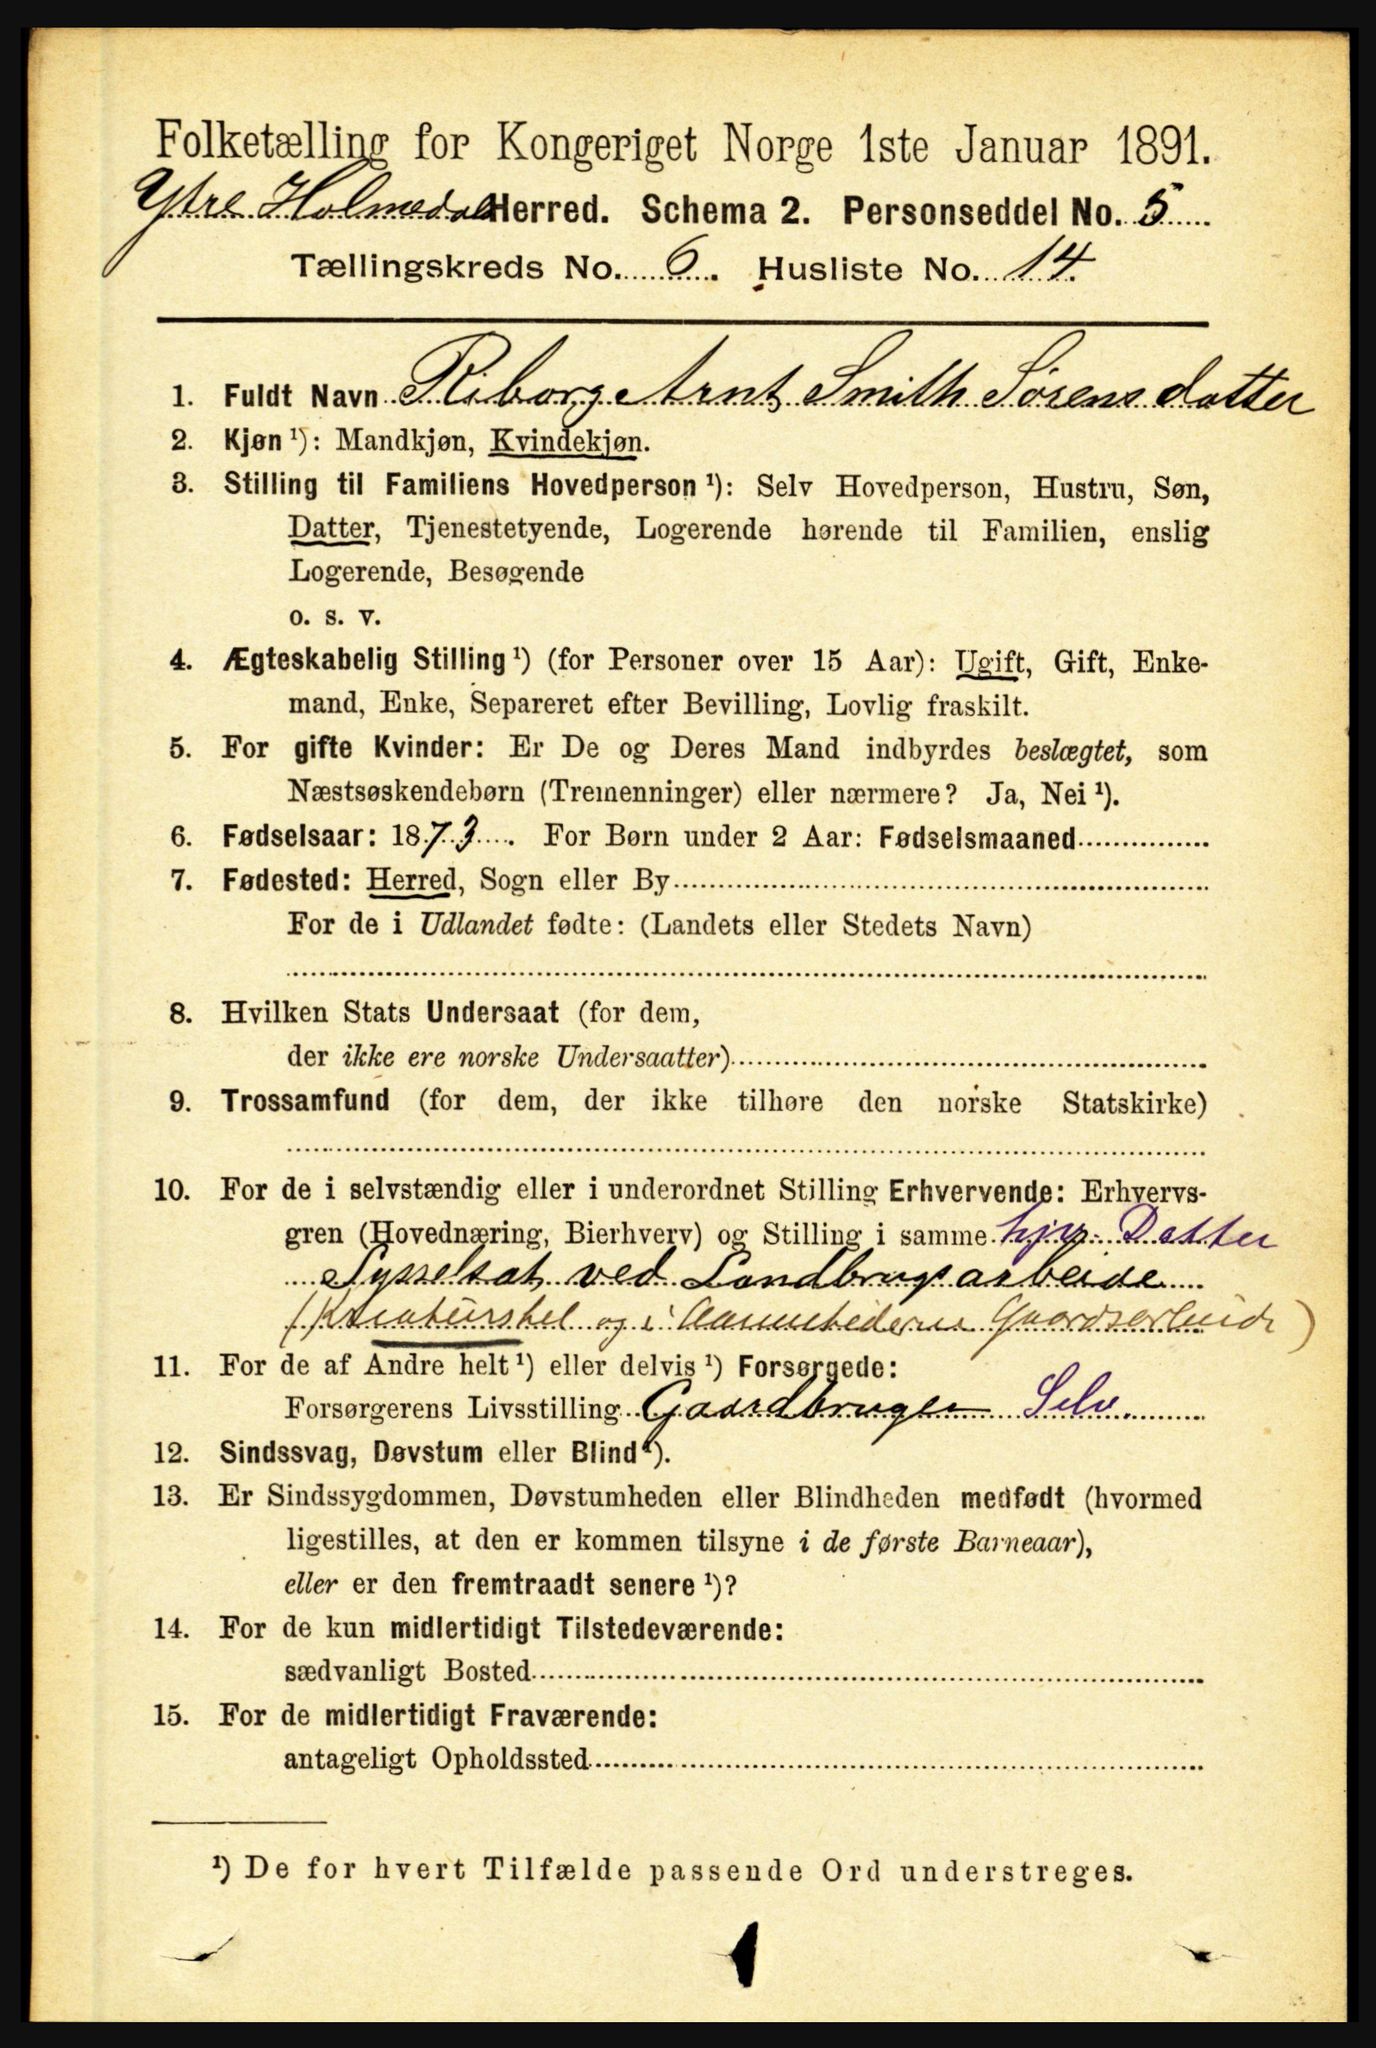 Folketælling for Kongeriget Norge 1ste Januar 1891.
Ytre Holmedal Herred. Schema 2. Personseddel No. 5
Tællingskreds No. 6. Husliste No. 14.
1. Fuldt Navn Riborg Arnt Smith Sørensdatter
2. Kjøn ¹): Mandkjøn, Kvindekjøn.
3. Stilling til Familiens Hovedperson ¹): Selv Hovedperson, Hustru, Søn,
Datter, Tjenestetyende, Logerende hørende til Familien, enslig
Logerende, Besøgende
o. s. v.
4. Ægteskabelig Stilling ¹) (for Personer over 15 Aar): Ugift, Gift, Enke-
mand, Enke, Separeret efter Bevilling, Lovlig fraskilt.
5. For gifte Kvinder: Er De og Deres Mand indbyrdes beslægtet, som
Næstsøskendebørn (Tremenninger) eller nærmere? Ja, Nei ¹).
6. Fødselsaar: 1873. For Børn under 2 Aar: Fødselsmaaned
7. Fødested: Herred, Sogn eller By
For de i Udlandet fødte: (Landets eller Stedets Navn)
8. Hvilken Stats Undersaat (for dem,
der ikke ere norske Undersaatter)
9. Trossamfund (for dem, der ikke tilhøre den norske Statskirke)
10. For de i selvstændig eller i underordnet Stilling Erhvervende: Erhvervs-
gren (Hovednæring, Bierhverv) og Stilling i samme hjp. Datter
Sysselsat ved Landbrugsarbeide
(Kreaturstel og i Aannetiderne Gaardsarbeide)
11. For de af Andre helt ¹) eller delvis ¹) Forsørgede:
Forsørgerens Livsstilling Gaardbruger Selv.
12. Sindssvag, Døvstum eller Blind ¹).
13. Er Sindssygdommen, Døvstumheden eller Blindheden medfødt (hvormed
ligestilles, at den er kommen tilsyne i de første Barneaar),
eller er den fremtraadt senere ¹)?
14. For de kun midlertidigt Tilstedeværende:
sædvanligt Bosted
15. For de midlertidigt Fraværende:
antageligt Opholdssted
¹) De for hvert Tilfælde passende Ord understreges.